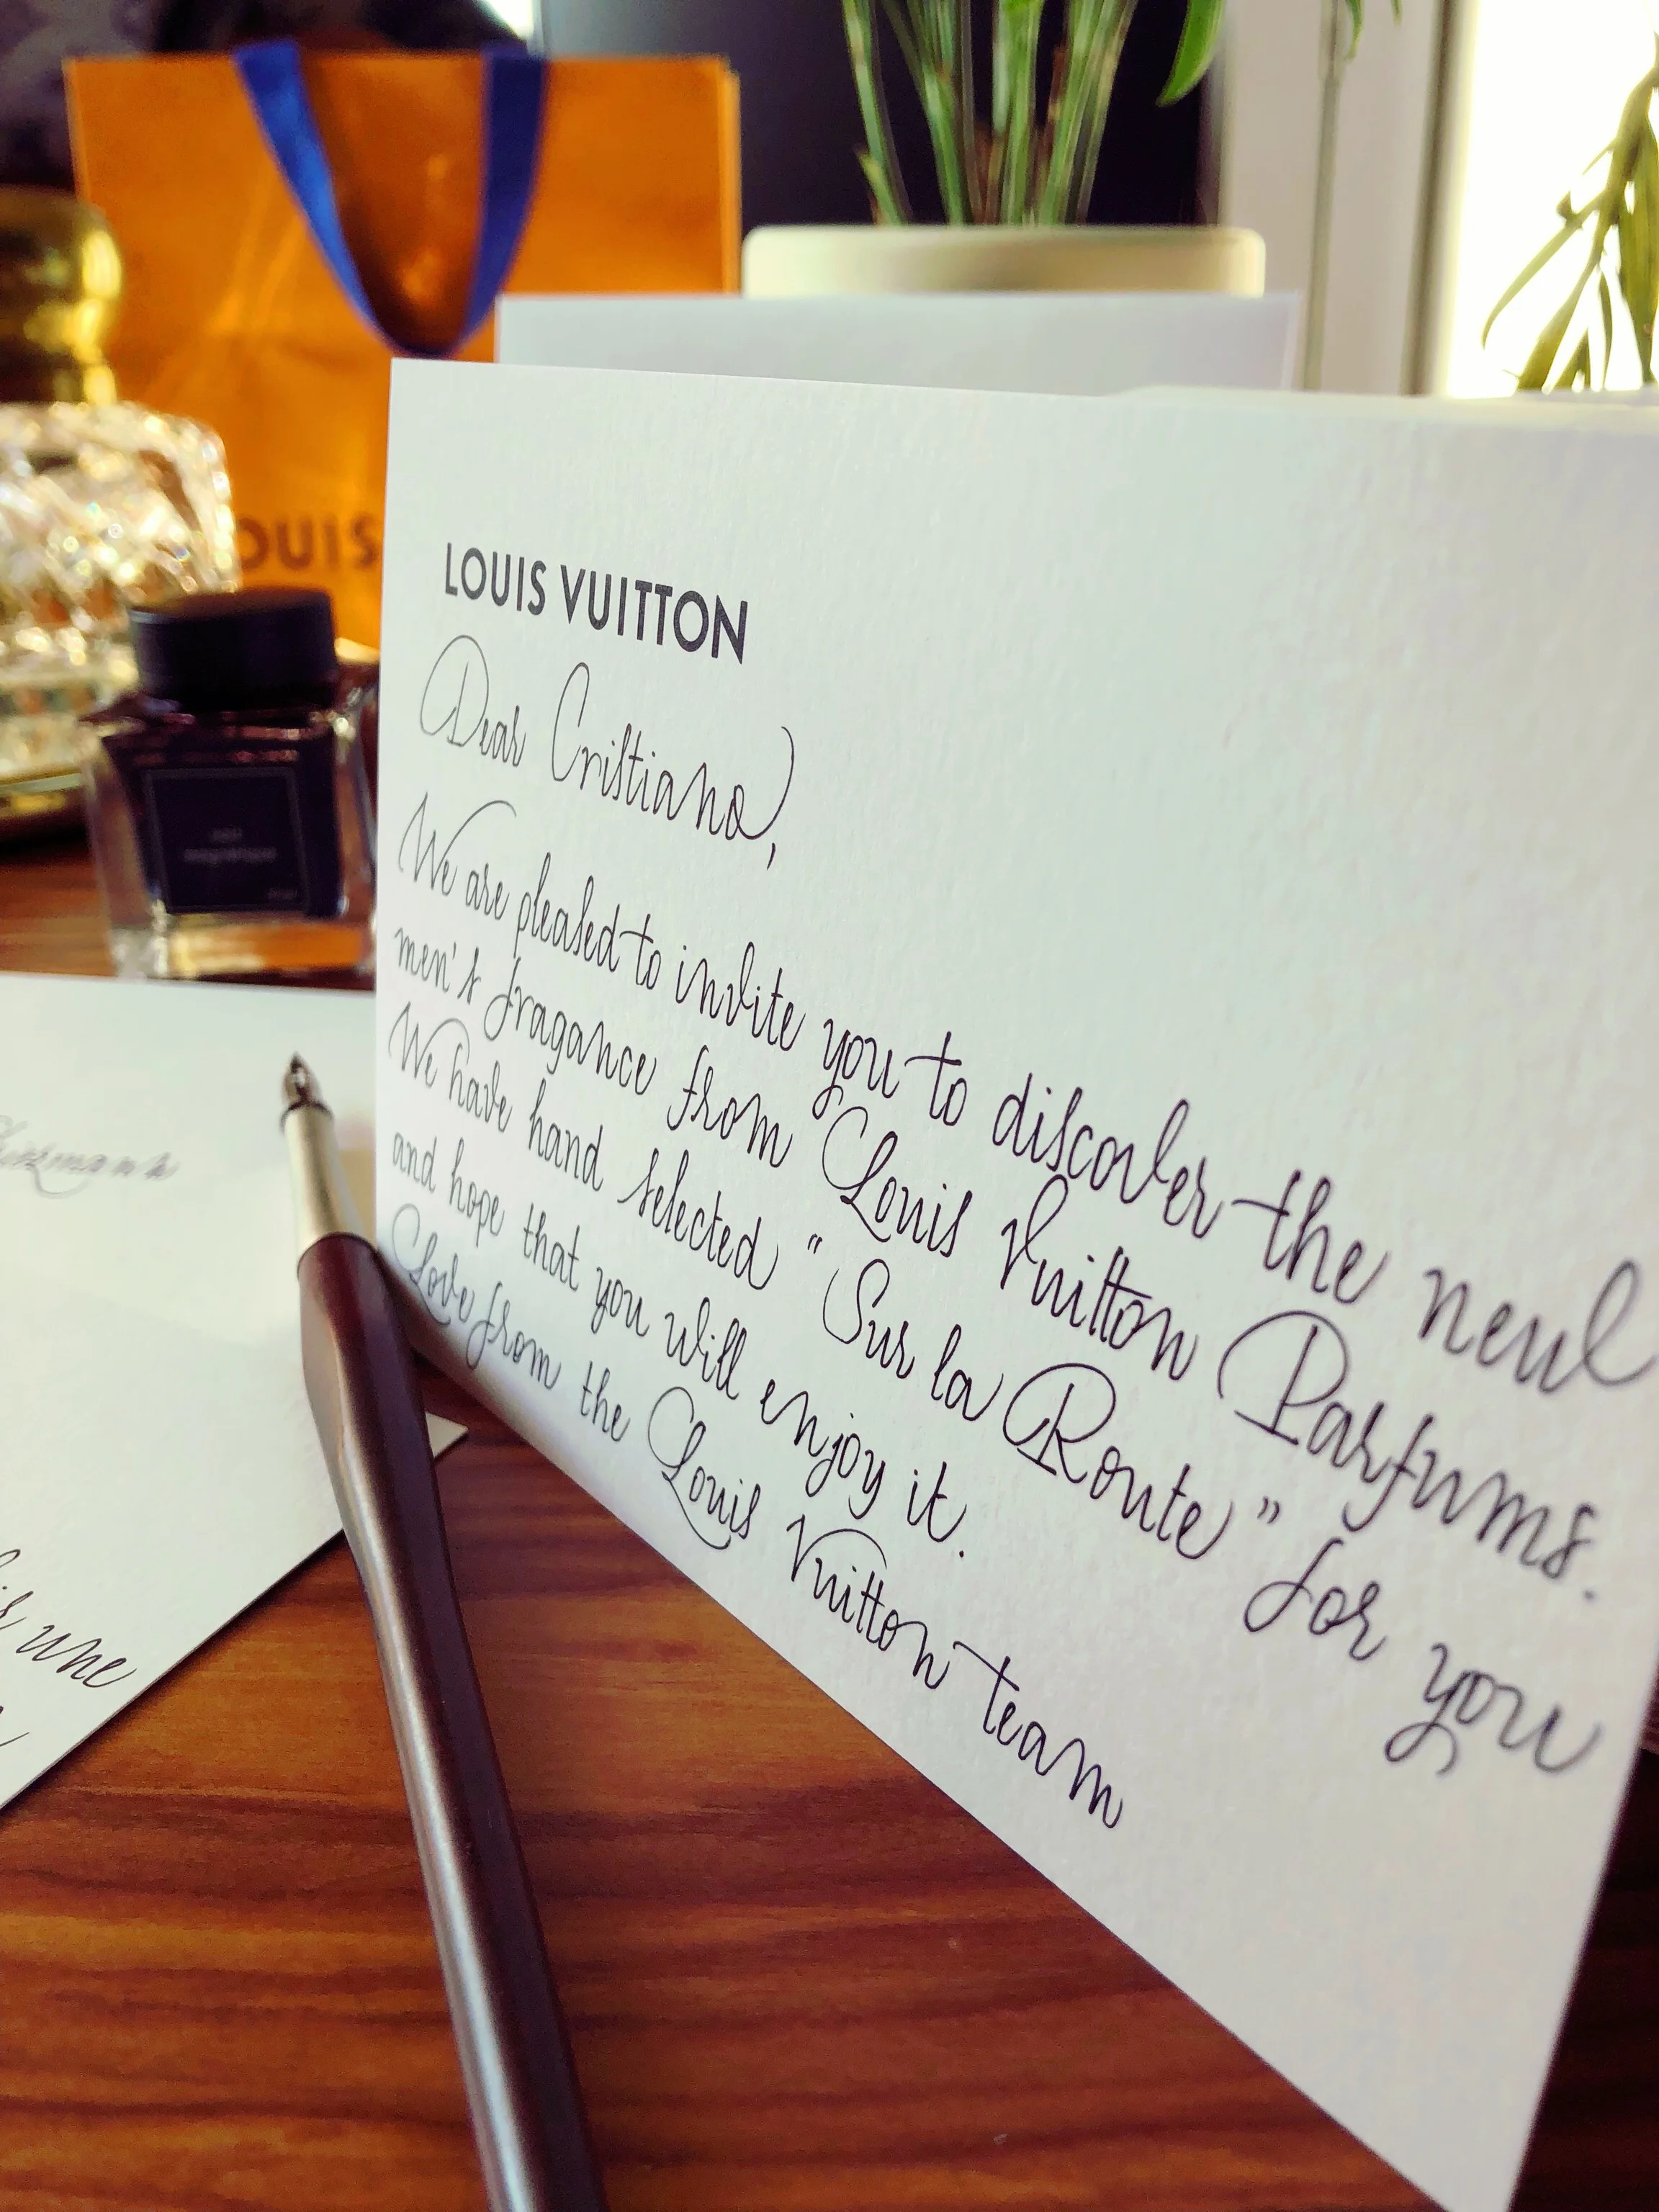 OUIS
LOUIS VUITTON
Dear Cristiano,
We are pleased to invite you to discover the new
men's fragance from Louis Vuitton Parfums.
We have hand selected "Sur la Route" for you
and hope that you will enjoy it.
Love from the Louis Vuitton team
une